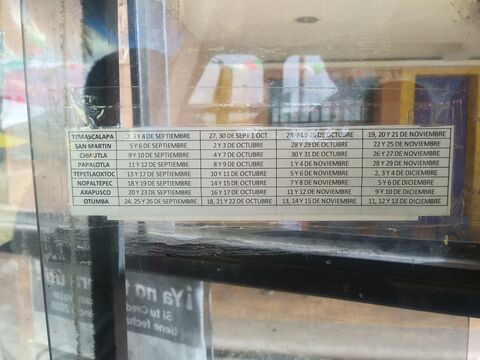 TEMASCALAPA 2, 3 Y 4 DE SEPTIEMBRE 27, 30 DE SEPT 1 OCT 23, 24 Y 25 DE OCTUBRE 19, 20 Y 21 DE NOVIEMBRE
SAN MARTIN 5 Y 6 DE SEPTIEMBRE 2 Y 3 DE OCTUBRE 28 Y 29 DE OCTUBRE 22 Y 25 DE NOVIEMBRE
CHIAUTLA 9 Y 10 DE SEPTIEMBRE 4 Y 7 DE OCTUBRE 30 Y 31 DE OCTUBRE 26 Y 27 DE NOVIEMBRE
PAPALOTLA 11 Y 12 DE SEPTIEMBRE 8 Y 9 DE OCTUBRE 1 Y 4 DE NOVIEMBRE 28 Y 29 DE NOVIEMBRE
TEPETLAOXTOC 13 Y 17 DE SEPTIEMBRE 10 Y 11 DE OCTUBRE 5 Y 6 DE NOVIEMBRE 2, 3 Y 4 DE DICIEMBRE
NOPALTEPEC 18 Y 19 DE SEPTIEMBRE 14 Y 15 DE OCTUBRE 7 Y 8 DE NOVIEMBRE 5 Y 6 DE DICIEMBRE
AXAPUSCO 20 Y 23 DE SEPTIEMBRE 16 Y 17 DE OCTUBRE 11 Y 12 DE NOVIEMBRE 9 Y 10 DE DICIEMBRE
OTUMBA 24, 25 Y 26 DE SEPTIEMBRE 18, 21 Y 22 DE OCTUBRE 13, 14 Y 15 DE NOVIEMBRE 11, 12 Y 13 DE DICIEMBRE
¡Ya no
Si tu Cred
tiene fecha